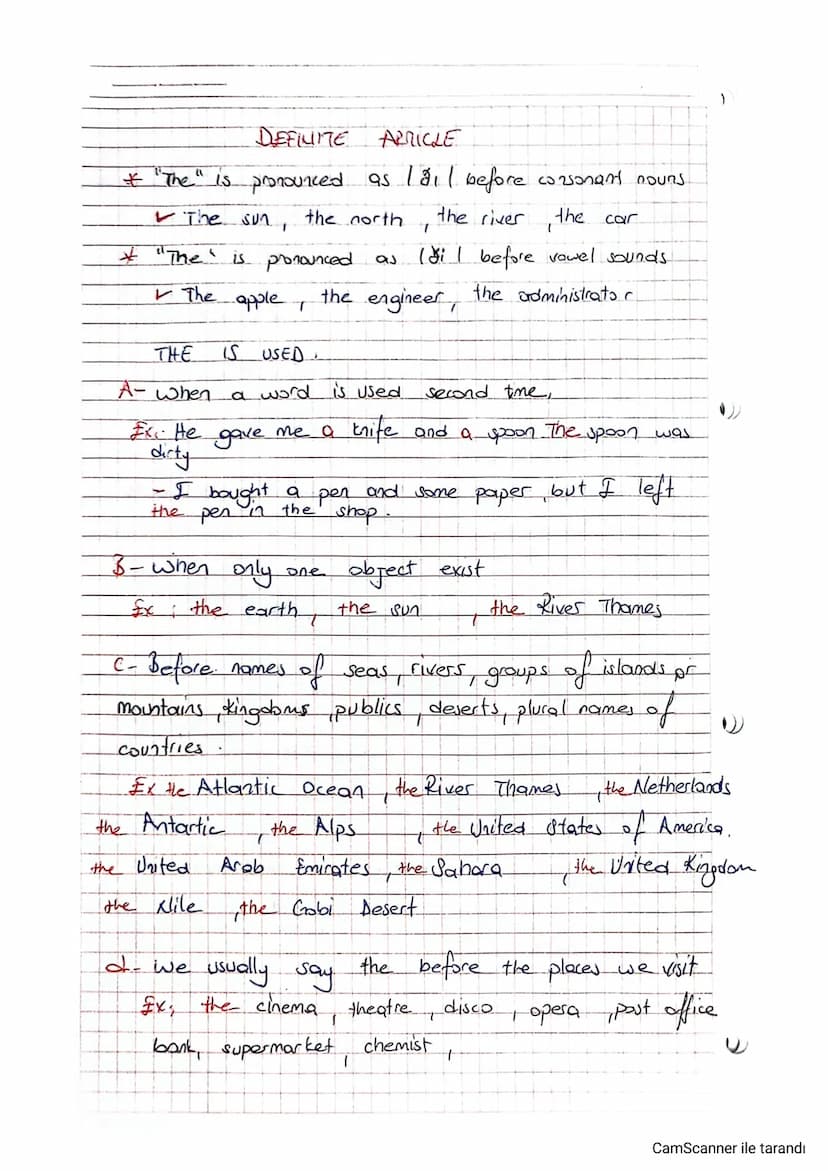 )
DEFINITE ARTICLE
* "The" is pronounced as /ðı/ before consonant nouns
✓ The sun, the north, the river, the car
* "The" is pronounced as /ði/ before vowel sounds
✓ The apple, the engineer, the administrator
THE IS USED.
A- When a word is used second tme,
Ex: He gave me a knife and a spoon The spoon was
dirty
- I bought a pen and some paper, but I left
the pen in the shop.
B- When only one object exist
Ex: the earth, the sun, the River Thames
C- Before names of seas, rivers, groups of islands or
mountains, kingdoms, publics, deserts, plural names of
countries.
Ex the Atlantic Ocean, the River Thames, the Netherlands
the Antartic, the Alps, the United States of America,
the United Arab Emirates, the Sahara, the United Kingdom
the Nile, the Gobi Desert
d- we usually say the before the places we visit
Ex; the cinema, theatre, disco, opera, post office
bank, supermarket, chemist,
CamScanner ile tarandı